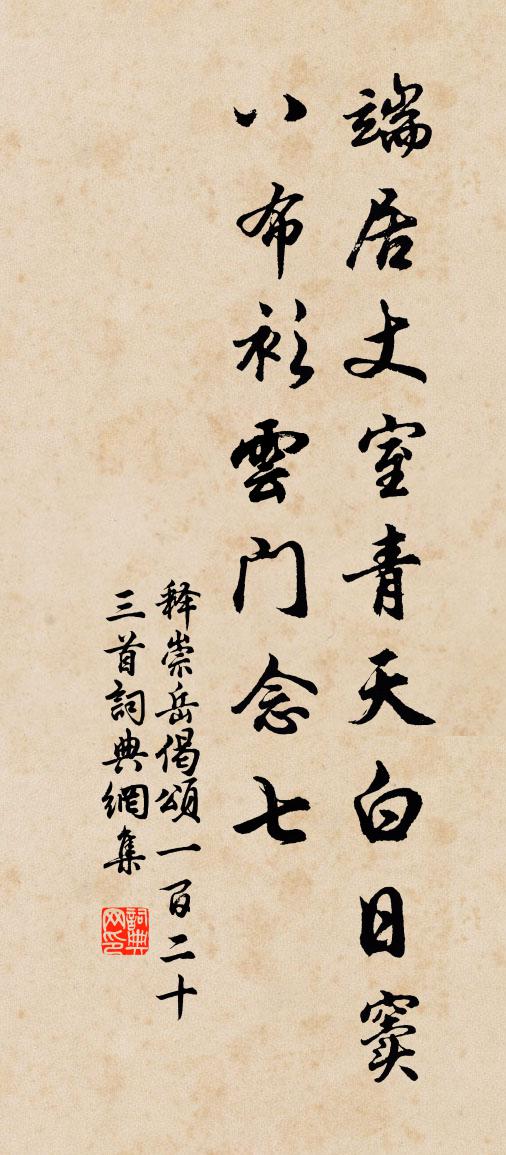 端居丈室青天白日窦
八布衫雲門念七
释崇岳偈頌一百二十
三首詞典網集
詞典
网印